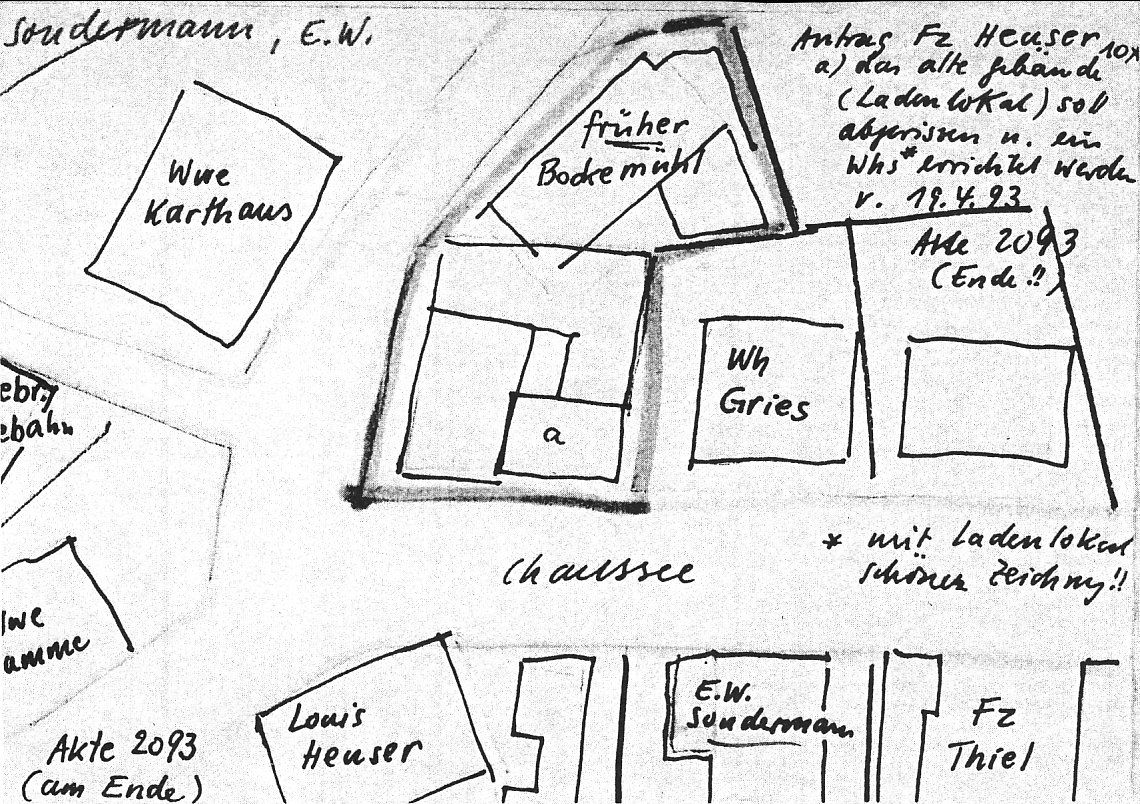 Sondermann, E.W.
Antrag Fz Heuser
a) das alte Gebäude
(Ladenlokal) soll
abgerissen u. ein
Whs* errichtet werden
v. 19.4.93
Akte 2093
(Ende!!)
früher
Bockemühl
Wwe
Karthaus
Wh
Gries
a
* mit Ladenlokal
schönen Zeichng!!
Chaussee
Louis
Heuser
E.W.
Sondermann
Fz
Thiel
Akte 2093
(am Ende)